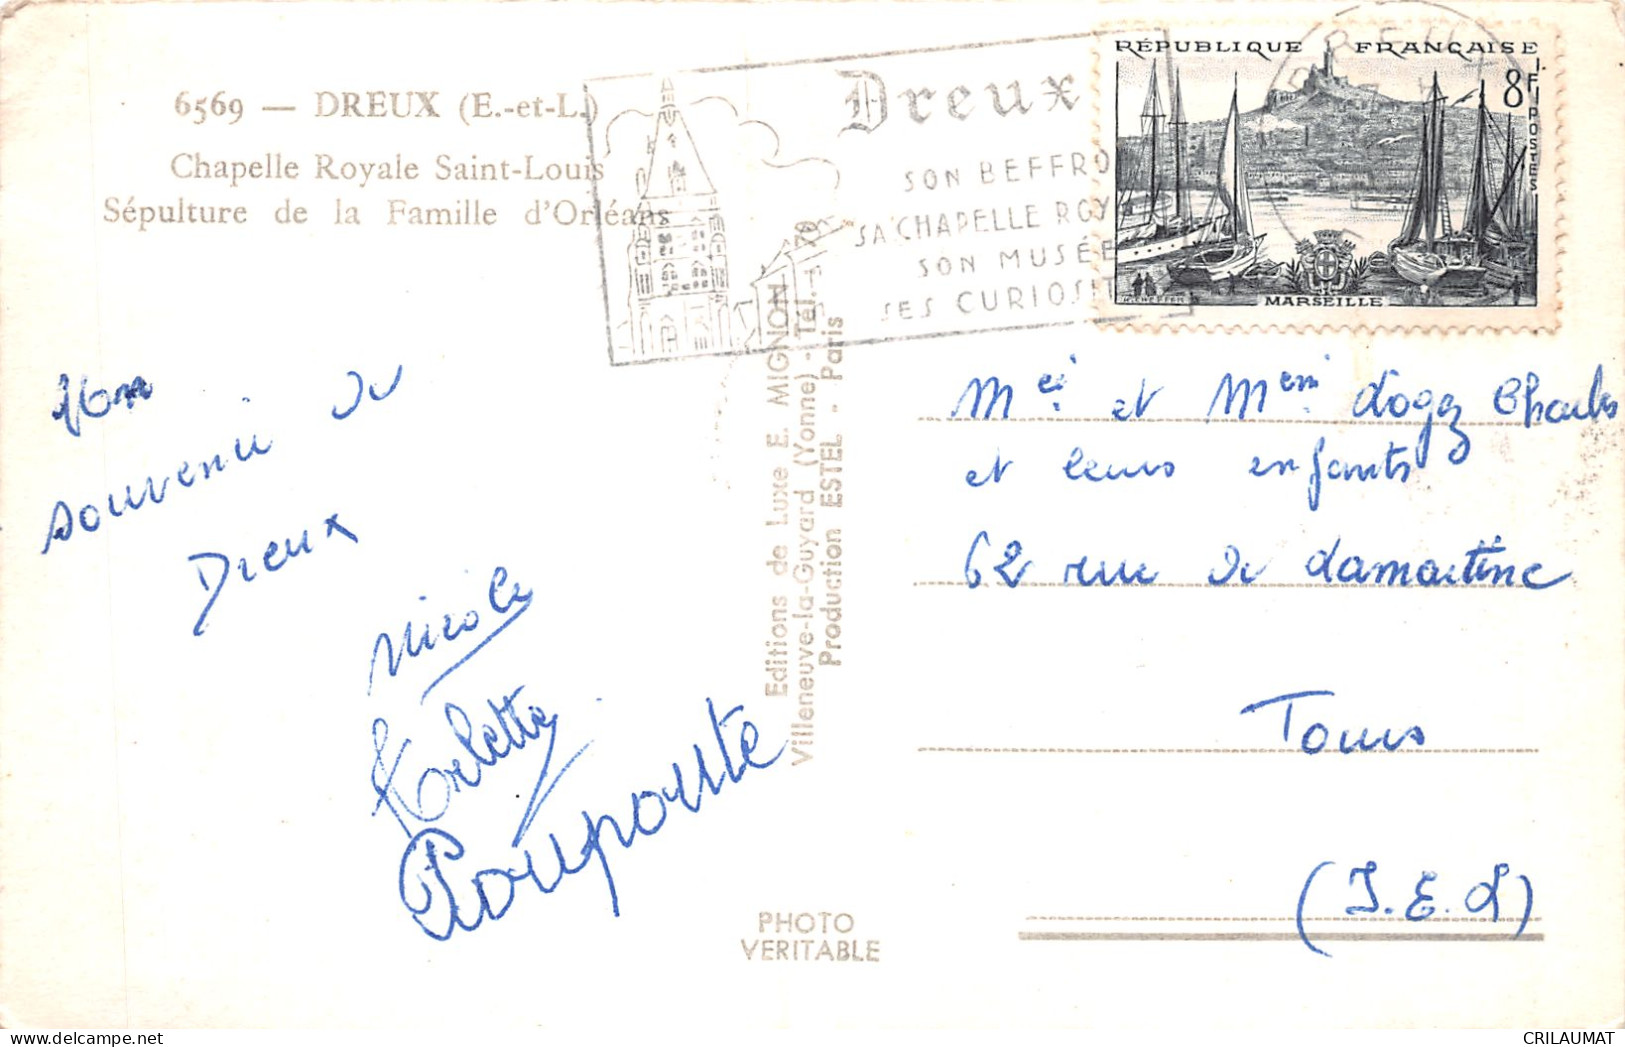 6569 — DREUX (E.-et-L.)
Chapelle Royale Saint-Louis
Sépulture de la Famille d'Orléans
Dreux
SON BEFFRO
SA CHAPELLE ROY
SON MUSÉE
SES CURIOSI
RÉPUBLIQUE FRANÇAISE
8F
POSTES
MARSEILLE
souvenir de
Dreux
Nicole
Arlette
Editions de Luxe E. MIGNON
Villeneuve-la-Guyard (Yonne) - Tél. : 70
Production ESTEL - Paris
et Mem Logez Charles
et leurs enfants
62 rue de Lamartine
Tours
(I.E.L)
PHOTO
VERITABLE
CRILAUMAT